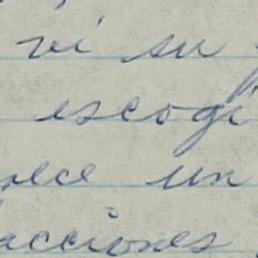 vi su
escogí
ece un
acciones